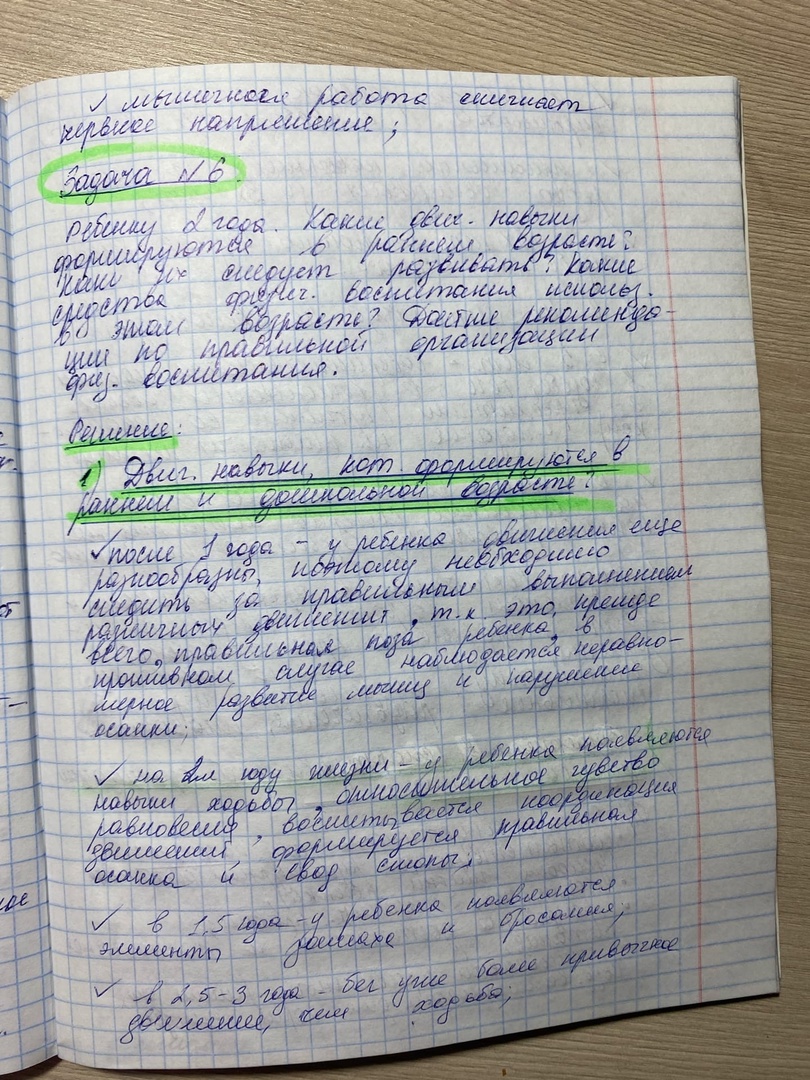 ✓ мышечная работа снимает
нервное напряжение;
Задача №6
Ребенку 2 года. Какие двиг. навыки
формируются в раннем возрасте?
Как их следует развивать? Какие
средства физич. воспитания использ.
в этом возрасте? Дайте рекоменда-
ции по правильной организации
физ. воспитания.
Решение:
1) Двиг. навыки, кот. формируются в
раннем и дошкольной возрасте?
✓ после 1 года - у ребенка движения еще
разнообразны, поэтому необходимо
следить за правильным выполнением
различных движений, т.к это, прежде
всего, правильная поза ребенка, в
противном случае наблюдается неравно-
мерное развитие мышц и нарушение
осанки;
✓ на 2м году жизни - у ребенка появляются
навыки ходьбы, относительное чувство
равновесия, воспитывается координация
движений, формируется правильная
осанка и свод стопы;
✓ в 1,5 года - у ребенка появляются
элементы замаха и бросания;
✓ в 2,5-3 года - бег уже более привычное
движение, чем ходьба;